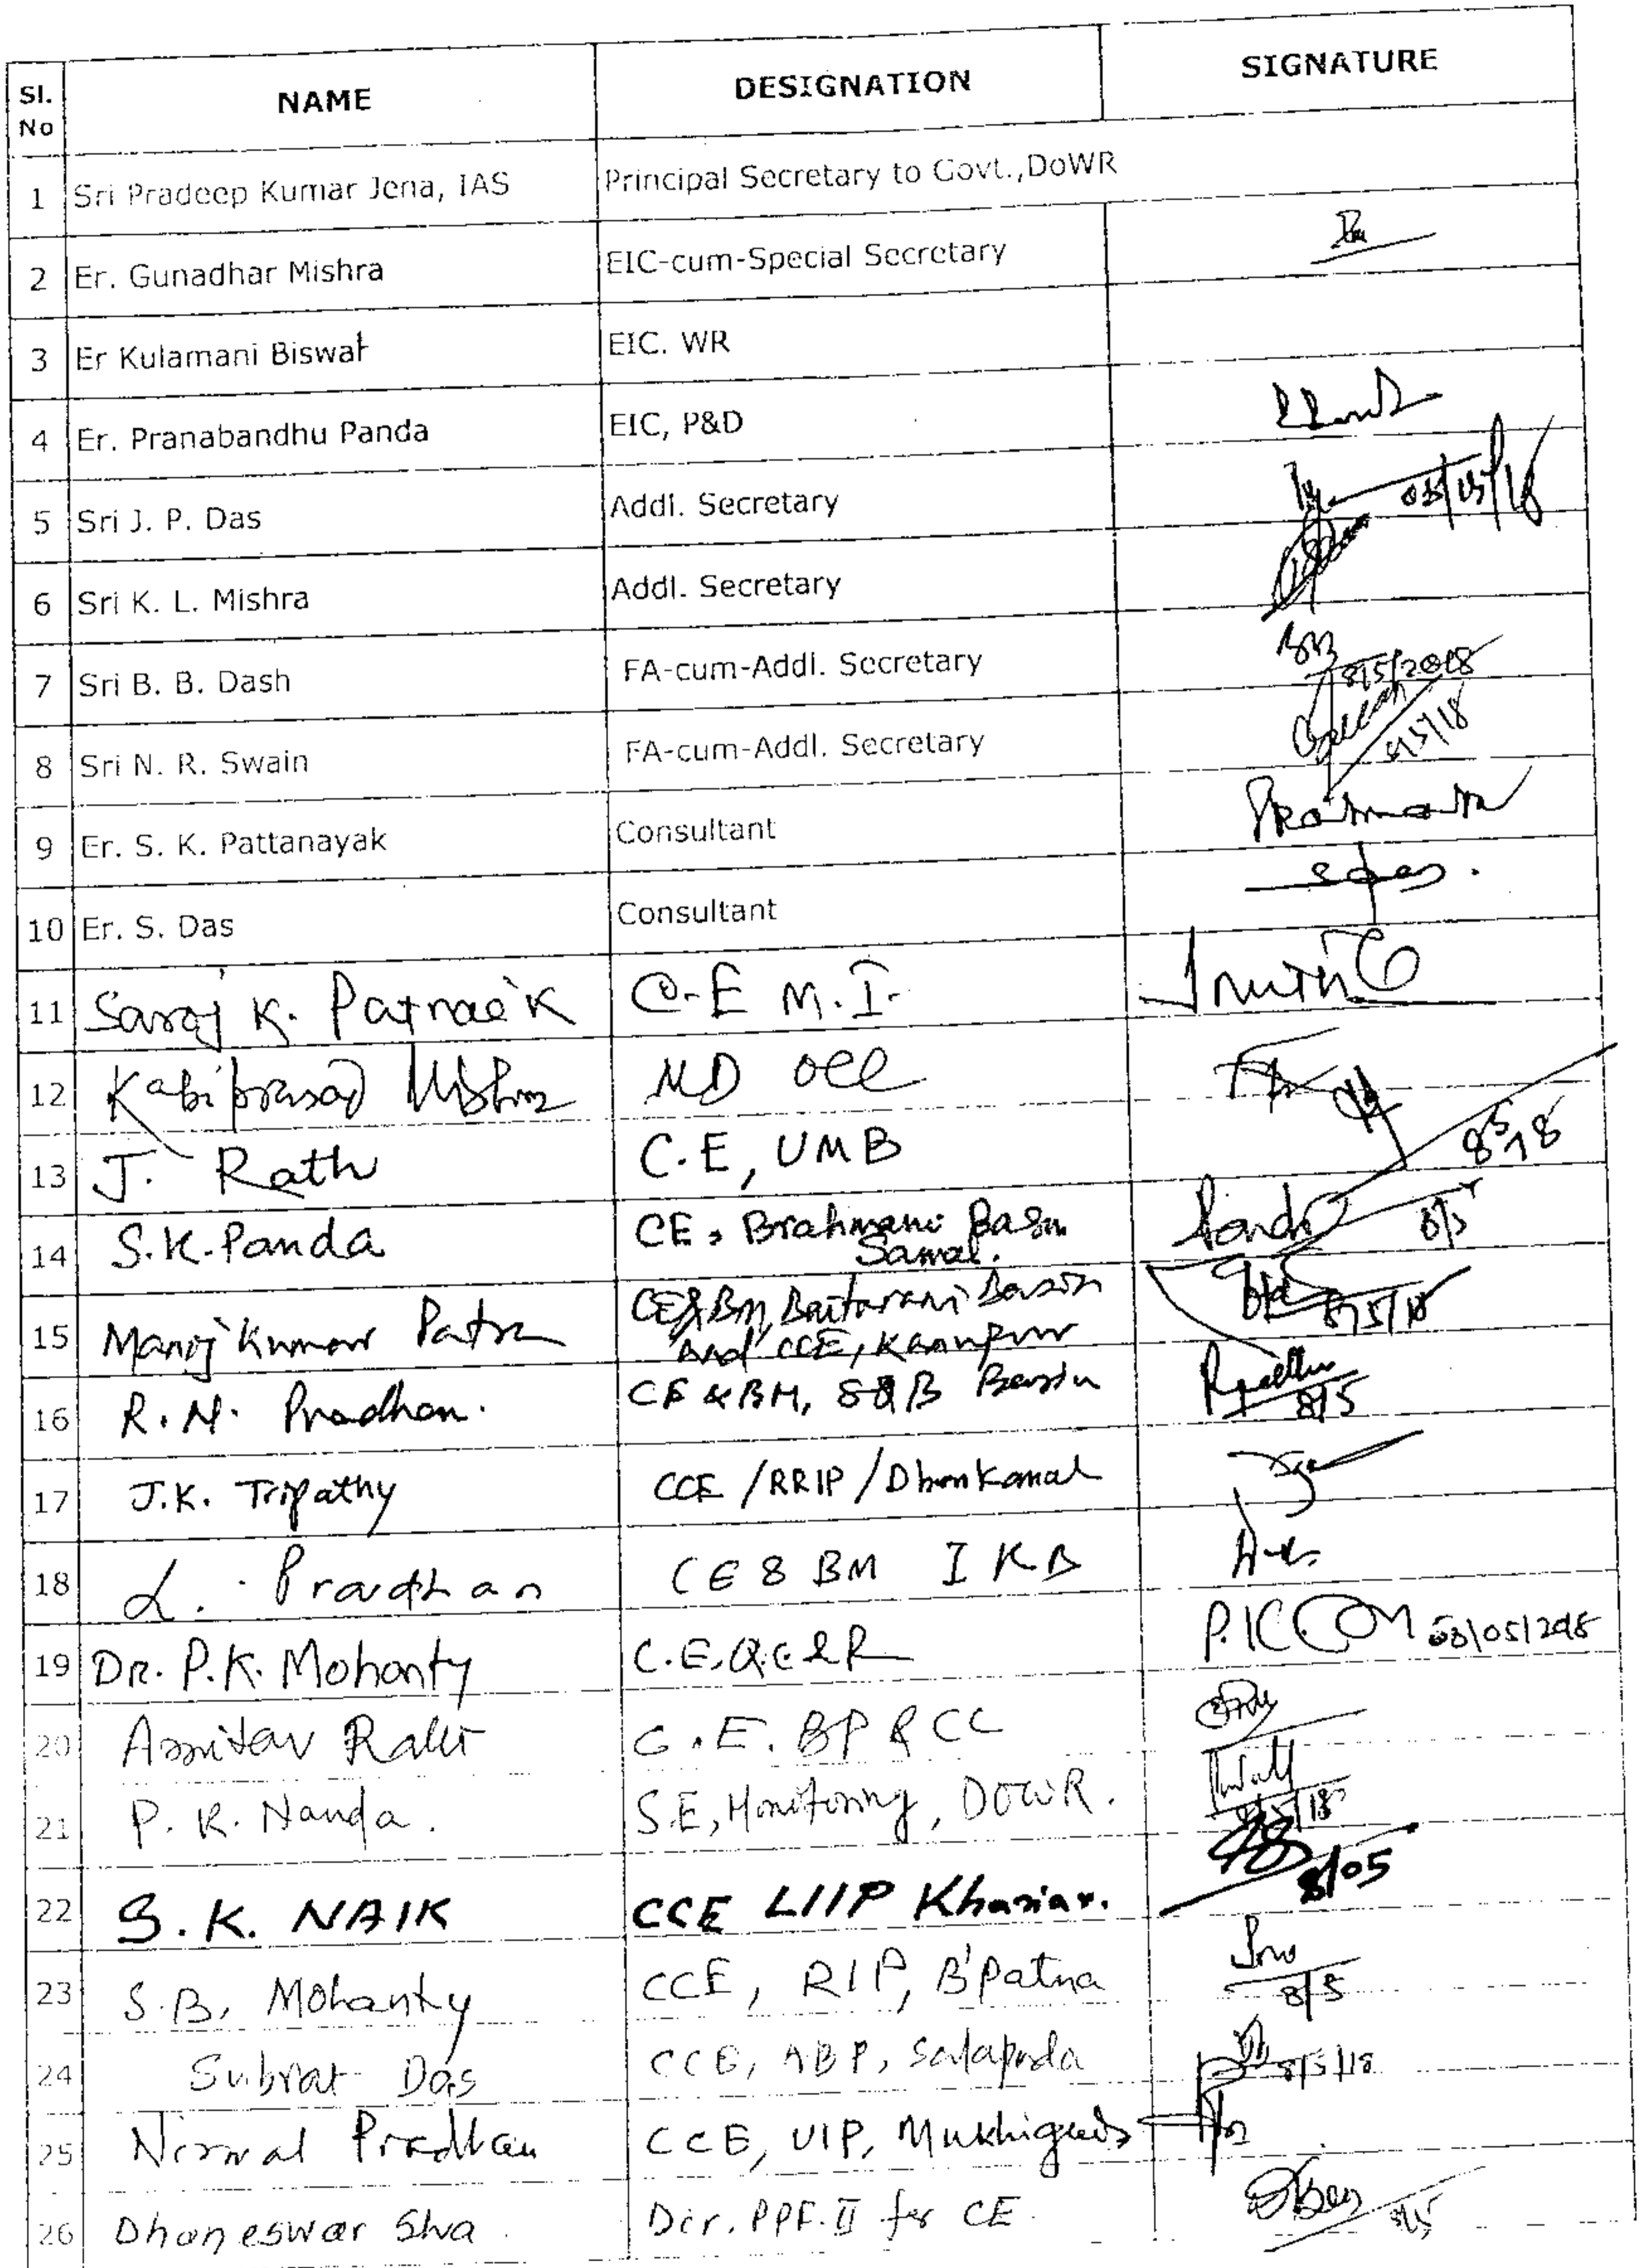 Sl. No NAME DESIGNATION SIGNATURE
1 Sri Pradeep Kumar Jena, IAS Principal Secretary to Govt.,DoWR
2 Er. Gunadhar Mishra EIC-cum-Special Secretary
3 Er Kulamani Biswal EIC. WR
4 Er. Pranabandhu Panda EIC, P&D
5 Sri J. P. Das Addl. Secretary 08/05/18
6 Sri K. L. Mishra Addl. Secretary
7 Sri B. B. Dash FA-cum-Addl. Secretary 8/5/2018
8 Sri N. R. Swain FA-cum-Addl. Secretary 8/5/18
9 Er. S. K. Pattanayak Consultant
10 Er. S. Das Consultant
11 Saroj K. Patnaik C.E M.I.
12 Kabiprasad Mishra MD OCC
13 J. Rath C.E, UMB
14 S.K. Panda CE, Brahmani Basin Samal. 8/5
15 Manoj Kumar Patra CE&BM, Baitarani Basin and CCE, Kanupur 8/5/18
16 R.N. Pradhan. CE &BM, S&B Basin 8/5
17 J.K. Tripathy CCE /RRIP/Dhenkanal
18 L. Pradhan CE & BM IKB
19 Dr. P.K. Mohanty C.E, QC&R 08/05/2018
20 C.E. BP & CC
21 P. K. Nanda. S.E, Monitoring, DOWR. 8/5/18
22 S.K. NAIK CCE LIIP Khariar. 8/05
23 S.B. Mohanty CCE, RIP, B'Patna 8/5
24 Subrat Das CCE, ABP, Salapada 8/5/18
25 Nirmal Pradhan CCE, UIP, Mukhiguda
26 Dhaneswar Dir. PPF. II for CE 8/5